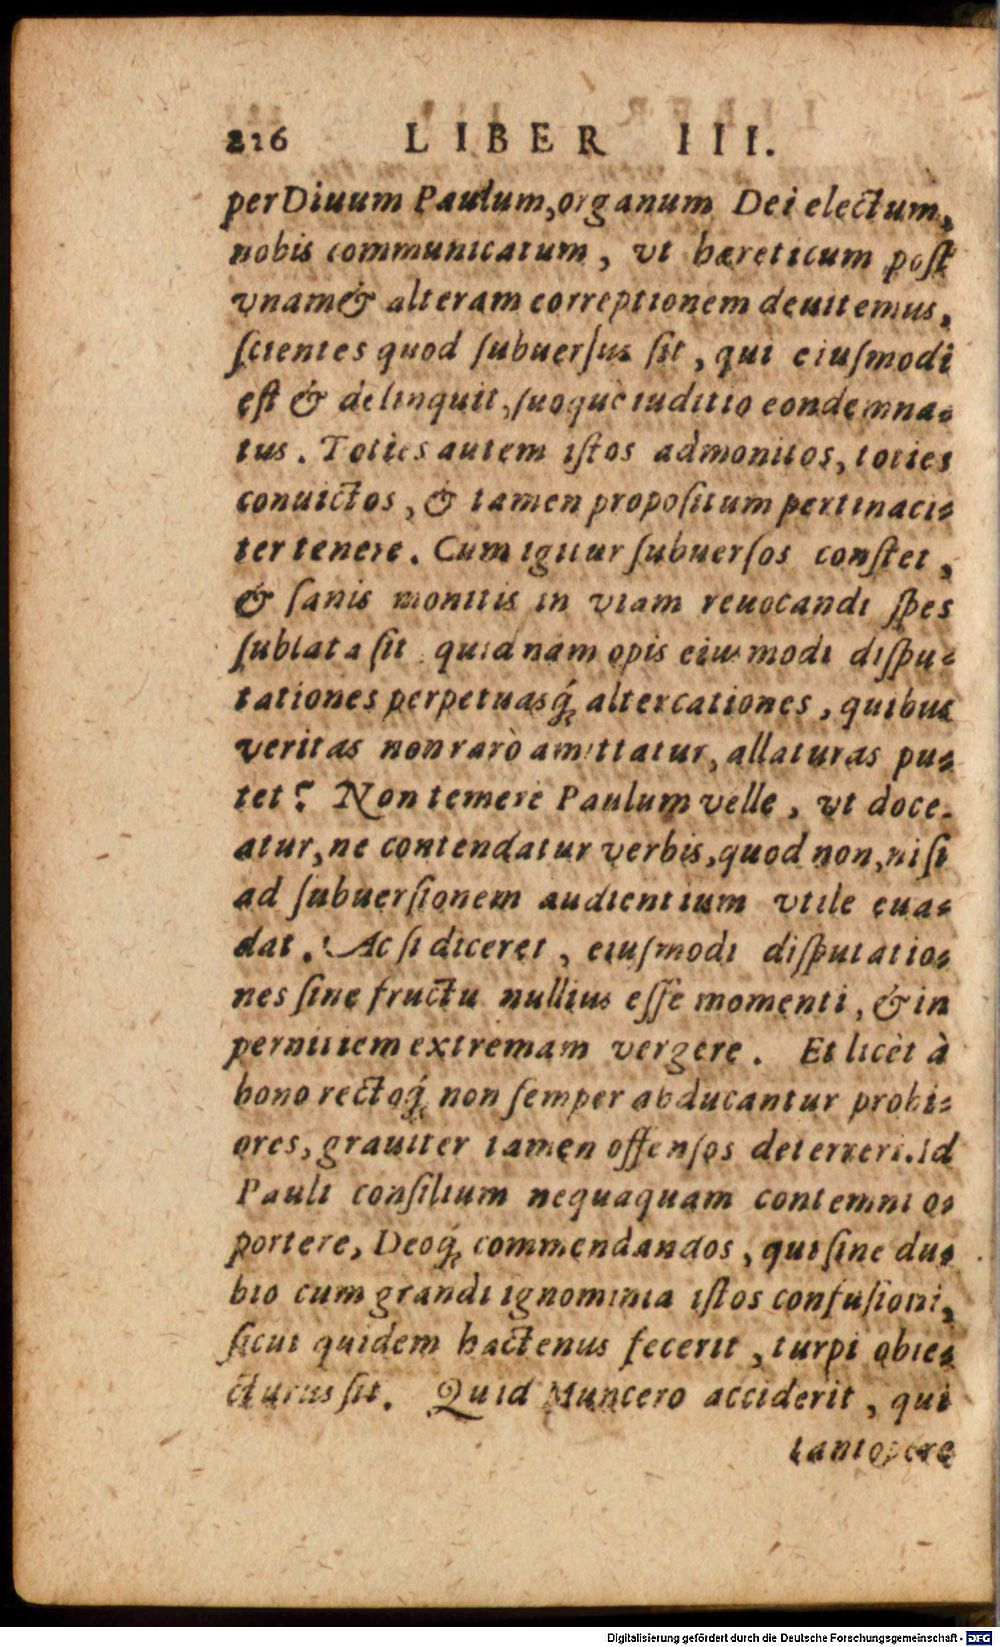 216 LIBER III.
per Diuum Paulum, organum Dei electum,
nobis communicatum, vt hæreticum post
vnam & alteram correptionem deuitemus,
scientes quod subuersus sit, qui eiusmodi
est & delinquit, suoque iuditio condemna-
tus. Toties autem istos admonitos, toties
conuictos, & tamen propositum pertinaci-
ter tenere. Cum igitur subuersos constet,
& sanis monitis in viam reuocandi spes
sublata sit quidnam opis eiusmodi dispu-
tationes perpetuasq́; altercationes, quibus
veritas non rarò amittatur, allaturas pu-
tet? Non temerè Paulum velle, vt doce-
atur, ne contendatur verbis, quod non, nisi
ad subuersionem audientium vtile eua-
dat. Ac si diceret, eiusmodi disputatio-
nes sine fructu nullius esse momenti, & in
pernitiem extremam vergere. Et licèt à
bono rectoq́; non semper abducantur probi-
ores, grauiter tamen offensos deterreri. Id
Pauli consilium nequaquam contemni o-
portere, Deoq́; commendandos, qui sine du-
bio cum grandi ignominia istos confusioni,
sicut quidem hactenus fecerit, turpi obie-
cturus sit. Quid Muncero acciderit, qui
tantopere
Digitalisierung gefördert durch die Deutsche Forschungsgemeinschaft - DFG